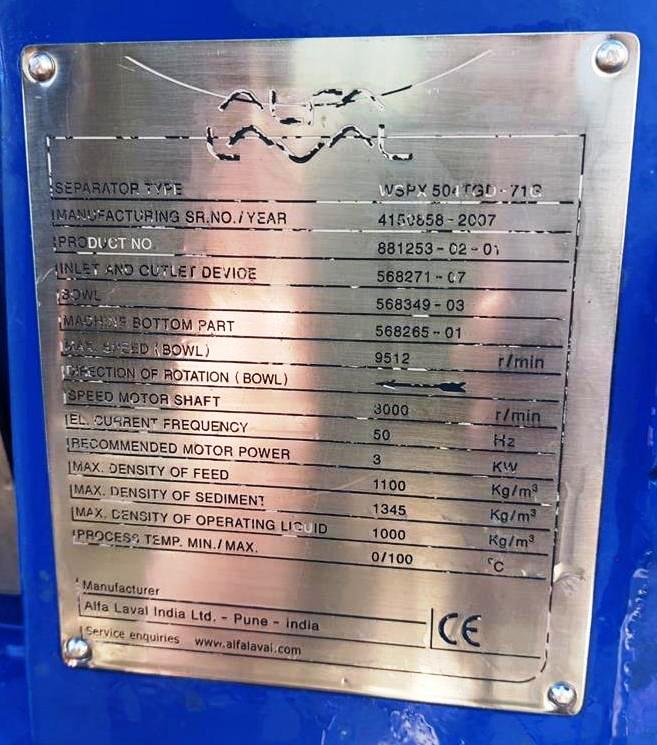 ALFA
LAVAL
SEPARATOR TYPE WSPX 504TGD-71G
MANUFACTURING SR.NO./YEAR 4150858-2007
PRODUCT NO. 881253-02-01
INLET AND OUTLET DEVICE 568271-07
BOWL 568349-03
MACHINE BOTTOM PART 568265-01
MAX. SPEED (BOWL) 9512 r/min
DIRECTION OF ROTATION (BOWL)
SPEED MOTOR SHAFT 3000 r/min
EL. CURRENT FREQUENCY 50 Hz
RECOMMENDED MOTOR POWER 3 KW
MAX. DENSITY OF FEED 1100 Kg/m³
MAX. DENSITY OF SEDIMENT 1345 Kg/m³
MAX. DENSITY OF OPERATING LIQUID 1000 Kg/m³
PROCESS TEMP. MIN./MAX. 0/100 °C
Manufacturer
Alfa Laval India Ltd. - Pune - India
CE
Service enquiries www.alfalaval.com